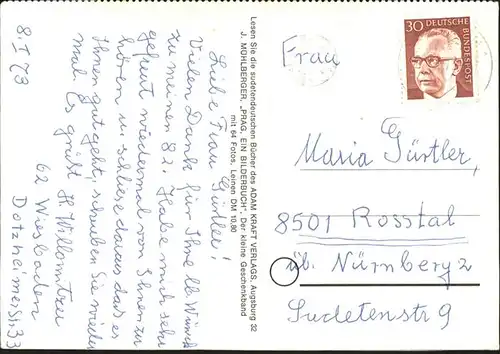 8. I 73
Liebe Frau Gürtler!
Vielen Dank für Ihre lb Wünsche
zu meinen 82. Habe mich sehr
gefreut wiedermal von Ihnen zu
hören u. schliese daraus das es
Ihnen gut geht, schreiben Sie wieder
mal Es grüßt
62 Wiesbaden
Dotzheimerstr 33
Lesen Sie die sudetendeutschen Bücher des ADAM KRAFT VERLAGS, Augsburg 32
J. MÜHLBERGER, „PRAG, EIN BILDERBUCH". Der kleine Geschenkband
mit 64 Fotos, Leinen DM 10,80
30 DEUTSCHE
BUNDESPOST
Frau
Maria Gürtler,
8501 Rosstal
üb. Nürnberg 2
Sudetenstr 9